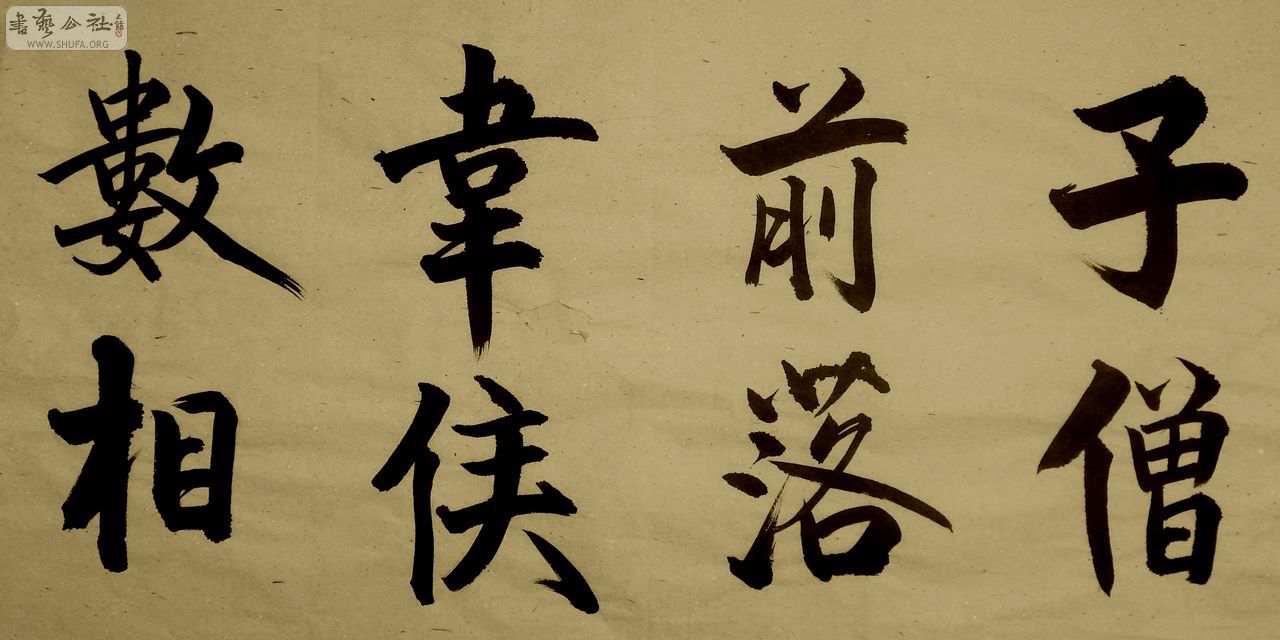 子僧
前落
韋侯
數相
書藝公社
WWW.SHUFA.ORG